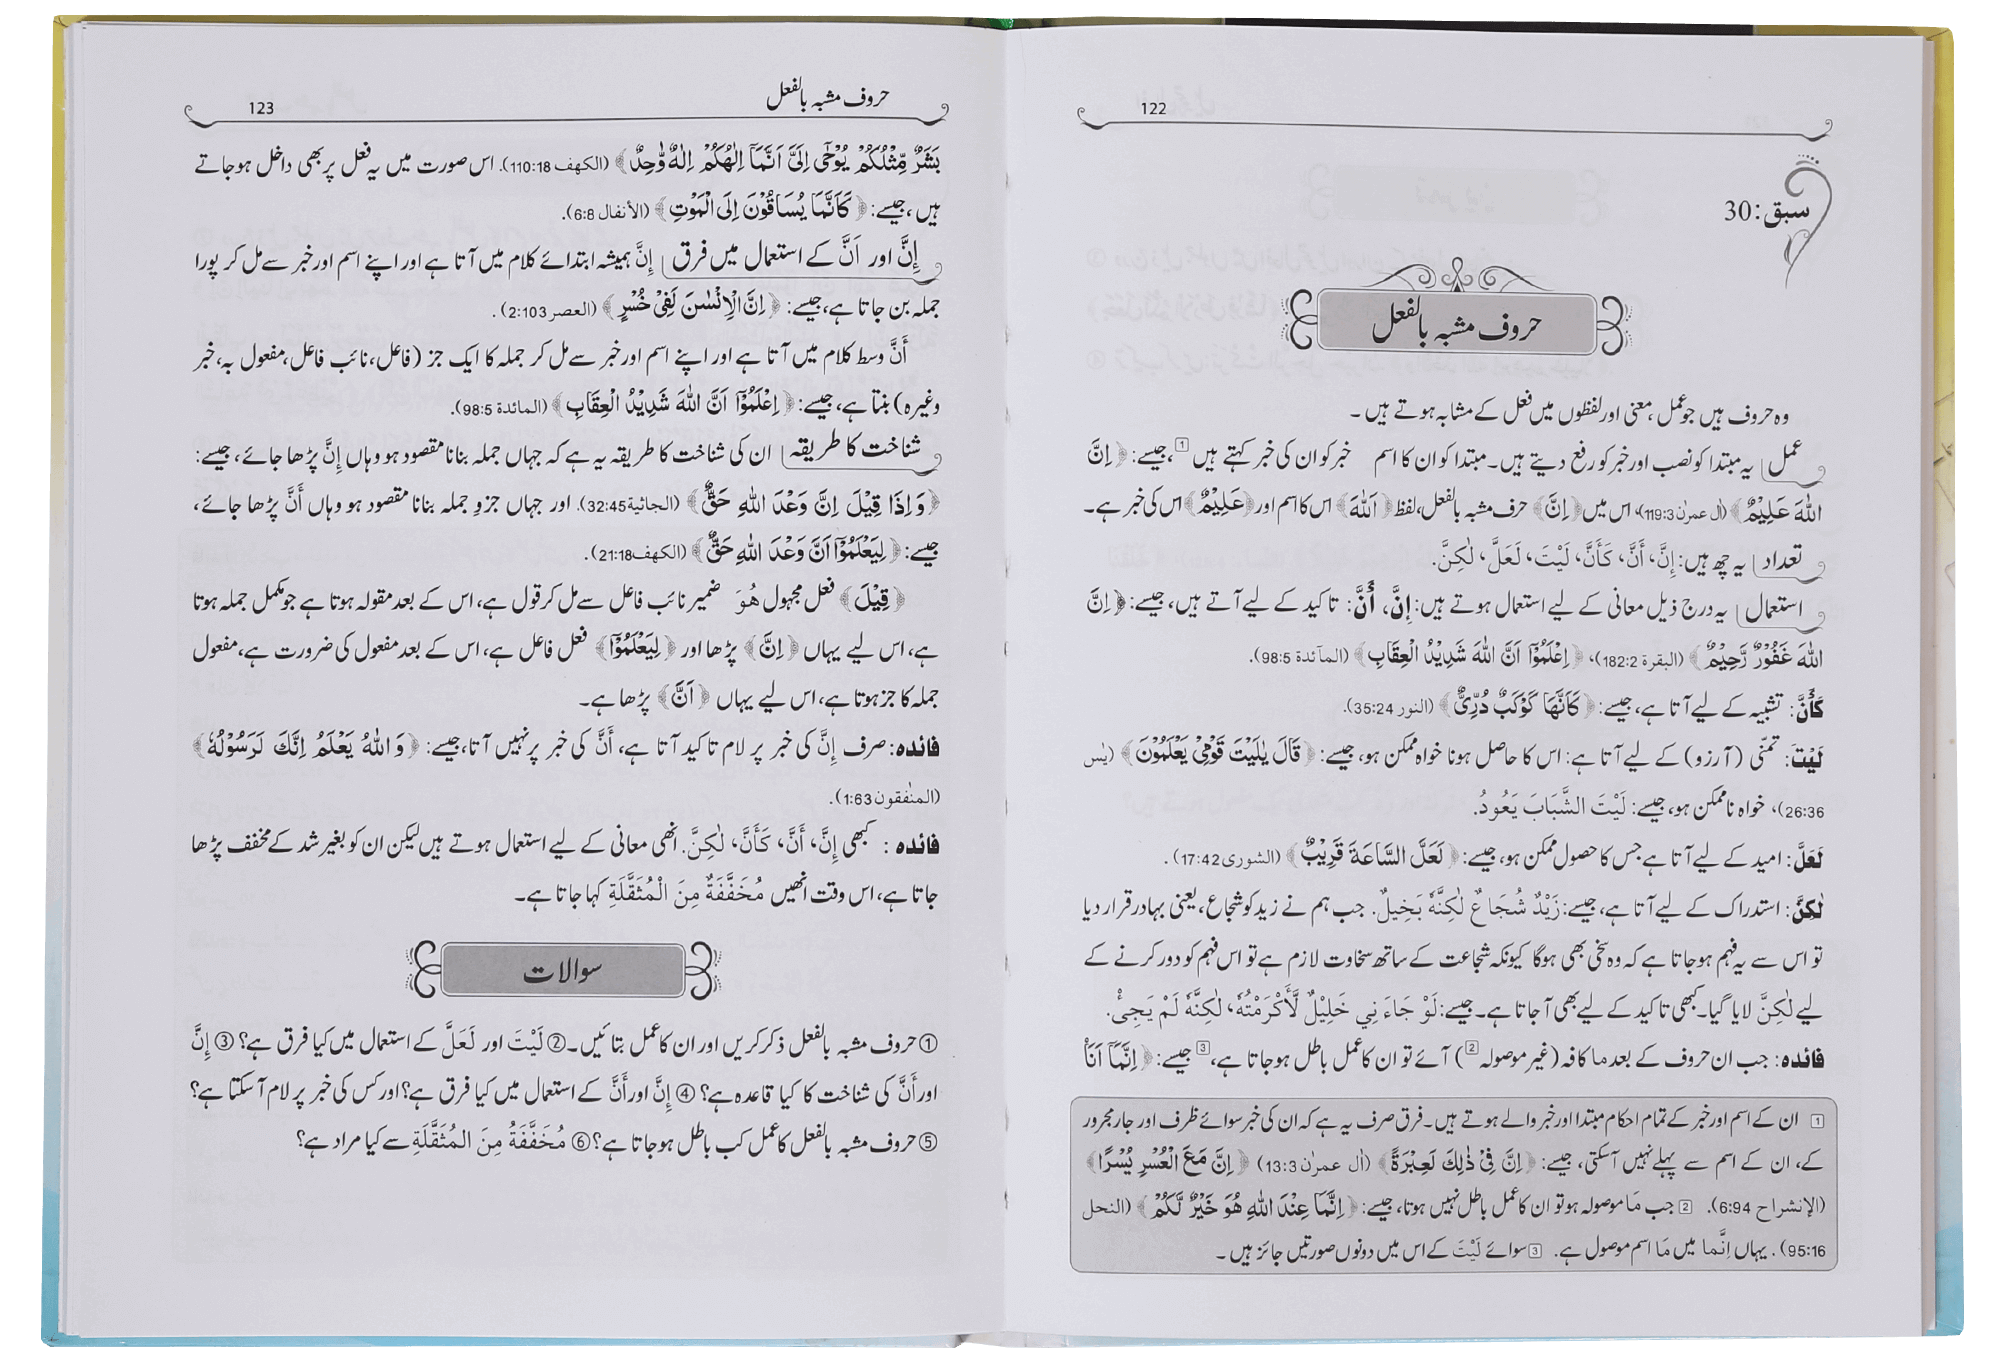 122
سبق:30
حروف مشبہ بالفعل
وہ حروف ہیں جو عمل، معنی اور لفظوں میں فعل کے مشابہ ہوتے ہیں۔
عمل یہ مبتدا کو نصب اور خبر کو رفع دیتے ہیں۔ مبتدا کو ان کا اسم خبر کو ان کی خبر کہتے ہیں 1، جیسے: ﴿اِنَّ
اللّٰهَ عَلِيْمٌ﴾ (اٰل عمرٰن 119:3)، اس میں ﴿اِنَّ﴾ حرف مشبہ بالفعل، لفظ ﴿اَللّٰهَ﴾ اس کا اسم اور ﴿عَلِيْمٌ﴾ اس کی خبر ہے۔
تعداد یہ چھ ہیں: إِنَّ، أَنَّ، كَأَنَّ، لَيْتَ، لَعَلَّ، لٰكِنَّ.
استعمال یہ درج ذیل معانی کے لیے استعمال ہوتے ہیں: إِنَّ، أَنَّ: تاکید کے لیے آتے ہیں، جیسے: ﴿اِنَّ
اللّٰهَ غَفُوْرٌ رَّحِيْمٌ﴾ (البقرة 182:2)، ﴿اِعْلَمُوْٓا اَنَّ اللّٰهَ شَدِيْدُ الْعِقَابِ﴾ (المآئدة 98:5).
كَأَنَّ: تشبیہ کے لیے آتا ہے، جیسے: ﴿كَاَنَّهَا كَوْكَبٌ دُرِّيٌّ﴾ (النور 35:24).
لَيْتَ: تمنّی (آرزو) کے لیے آتا ہے: اس کا حاصل ہونا خواہ ممکن ہو، جیسے: ﴿قَالَ يٰلَيْتَ قَوْمِيْ يَعْلَمُوْنَ﴾ (يٰس
26:36)، خواہ ناممکن ہو، جیسے: لَيْتَ الشَّبَابَ يَعُودُ.
لَعَلَّ: امید کے لیے آتا ہے جس کا حصول ممکن ہو، جیسے: ﴿لَعَلَّ السَّاعَةَ قَرِيْبٌ﴾ (الشورى 17:42).
لٰكِنَّ: استدراک کے لیے آتا ہے، جیسے: زَيْدٌ شُجَاعٌ لٰكِنَّهٗ بَخِيلٌ. جب ہم نے زید کو شجاع، یعنی بہادر قرار دیا
تو اس سے یہ فہم ہو جاتا ہے کہ وہ سخی بھی ہوگا کیونکہ شجاعت کے ساتھ سخاوت لازم ہے تو اس فہم کو دور کرنے کے
لیے لٰكِنَّ لایا گیا۔ کبھی تاکید کے لیے بھی آ جاتا ہے۔ جیسے: لَوْ جَاءَنِي خَلِيْلٌ لَّأَكْرَمْتُهٗ، لٰكِنَّهٗ لَمْ يَجِئْ.
فائدہ: جب ان حروف کے بعد ما کافہ (غیر موصولہ 2) آئے تو ان کا عمل باطل ہو جاتا ہے، 3 جیسے: ﴿اِنَّمَآ اَنَا۠
1 ان کے اسم اور خبر کے تمام احکام مبتدا اور خبر والے ہوتے ہیں۔ فرق صرف یہ ہے کہ ان کی خبر سوائے ظرف اور جار مجرور
کے، ان کے اسم سے پہلے نہیں آسکتی، جیسے: ﴿اِنَّ فِيْ ذٰلِكَ لَعِبْرَةً﴾ (اٰل عمرٰن 13:3) ﴿اِنَّ مَعَ الْعُسْرِ يُسْرًا﴾
(الإنشراح 6:94). 2 جب مَا موصولہ ہو تو ان کا عمل باطل نہیں ہوتا، جیسے: ﴿اِنَّمَا عِنْدَ اللّٰهِ هُوَ خَيْرٌ لَّكُمْ﴾ (النحل
95:16). یہاں إِنَّمَا میں مَا اسم موصول ہے۔ 3 سوائے لَيْتَ کے اس میں دونوں صورتیں جائز ہیں۔
حروف مشبہ بالفعل 123
بَشَرٌ مِّثْلُكُمْ يُوْحٰٓى اِلَيَّ اَنَّمَآ اِلٰهُكُمْ اِلٰهٌ وَّاحِدٌ﴾ (الكهف 110:18). اس صورت میں یہ فعل پر بھی داخل ہو جاتے
ہیں، جیسے: ﴿كَاَنَّمَا يُسَاقُوْنَ اِلَى الْمَوْتِ﴾ (الأنفال 6:8).
إِنَّ اور اَنَّ کے استعمال میں فرق إِنَّ ہمیشہ ابتدائے کلام میں آتا ہے اور اپنے اسم اور خبر سے مل کر پورا
جملہ بن جاتا ہے، جیسے: ﴿اِنَّ الْاِنْسٰنَ لَفِيْ خُسْرٍ﴾ (العصر 2:103).
أَنَّ وسط کلام میں آتا ہے اور اپنے اسم اور خبر سے مل کر جملہ کا ایک جز (فاعل، نائب فاعل، مفعول بہ، خبر
وغیرہ) بنتا ہے، جیسے: ﴿اِعْلَمُوْٓا اَنَّ اللّٰهَ شَدِيْدُ الْعِقَابِ﴾ (المائدة 98:5).
شناخت کا طریقہ ان کی شناخت کا طریقہ یہ ہے کہ جہاں جملہ بنانا مقصود ہو وہاں إِنَّ پڑھا جائے، جیسے:
﴿وَاِذَا قِيْلَ اِنَّ وَعْدَ اللّٰهِ حَقٌّ﴾ (الجاثية 32:45). اور جہاں جزوِ جملہ بنانا مقصود ہو وہاں أَنَّ پڑھا جائے،
جیسے: ﴿لِيَعْلَمُوْٓا اَنَّ وَعْدَ اللّٰهِ حَقٌّ﴾ (الكهف 21:18).
﴿قِيْلَ﴾ فعل مجہول هُوَ ضمیر نائب فاعل سے مل کر قول ہے، اس کے بعد مقولہ ہوتا ہے جو مکمل جملہ ہوتا
ہے، اس لیے یہاں ﴿اِنَّ﴾ پڑھا اور ﴿لِيَعْلَمُوْٓا﴾ فعل فاعل ہے، اس کے بعد مفعول کی ضرورت ہے، مفعول
جملہ کا جز ہوتا ہے، اس لیے یہاں ﴿اَنَّ﴾ پڑھا ہے۔
فائدہ: صرف إِنَّ کی خبر پر لام تاکید آتا ہے، أَنَّ کی خبر پر نہیں آتا، جیسے: ﴿وَاللّٰهُ يَعْلَمُ اِنَّكَ لَرَسُوْلُهٗ﴾
(المنٰفقون 1:63).
فائدہ: کبھی إِنَّ، أَنَّ، كَأَنَّ، لٰكِنَّ. انھی معانی کے لیے استعمال ہوتے ہیں لیکن ان کو بغیر شد کے مخفف پڑھا
جاتا ہے، اس وقت انھیں مُخَفَّفَةٌ مِنَ الْمُثَقَّلَةِ کہا جاتا ہے۔
سوالات
① حروف مشبہ بالفعل ذکر کریں اور ان کا عمل بتائیں۔ ② لَيْتَ اور لَعَلَّ کے استعمال میں کیا فرق ہے؟ ③ إِنَّ
اور أَنَّ کی شناخت کا کیا قاعدہ ہے؟ ④ إِنَّ اور أَنَّ کے استعمال میں کیا فرق ہے؟ اور کس کی خبر پر لام آ سکتا ہے؟
⑤ حروف مشبہ بالفعل کا عمل کب باطل ہو جاتا ہے؟ ⑥ مُخَفَّفَةُ مِنَ المُثَقَّلَةِ سے کیا مراد ہے؟